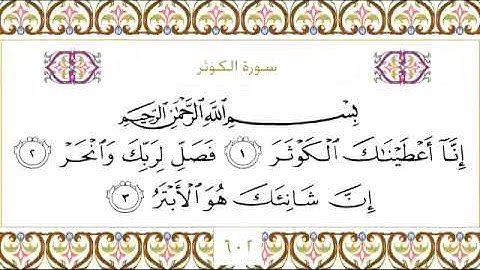 سورة الكوثر
بِسْمِ ٱللَّهِ ٱلرَّحْمَٰنِ ٱلرَّحِيمِ
إِنَّآ أَعْطَيْنَٰكَ ٱلْكَوْثَرَ ١ فَصَلِّ لِرَبِّكَ وَٱنْحَرْ ٢
إِنَّ شَانِئَكَ هُوَ ٱلْأَبْتَرُ ٣
٦٠٢